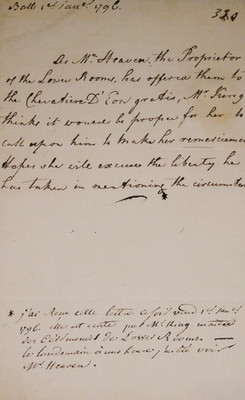 Bath 1st Janry 1796.
320
As Mr Heaven, the Proprietor
of the Lower Rooms, has offered them to
the Chevaliere D'Eon gratis, Mr King
thinks it would be proper for her to
call upon him to make her
Hopes she will excuse the liberty he
has taken in mentioning the circumstan
* j'ai reçu cette lettre ce soir 1er
1796. elle est écrite par Mr King
des Cérémonies des Lower Rooms —
le lendemain à une heure j'allé voir
Mr Heaven.